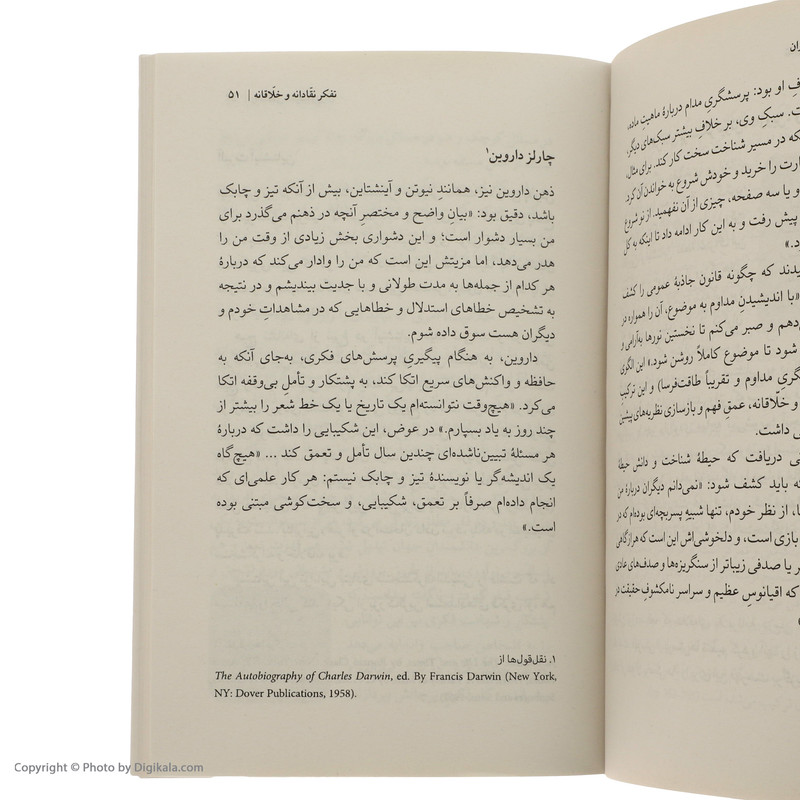 ران
فِ او بود: پرسشگریِ مدام دربارهٔ ماهیتِ ماده،
ت. سبکِ وی، بر خلافِ بیشتر سبک‌های دیگر،
که در مسیر شناخت سخت کار کند. برای مثال،
ارت را خرید و خودش شروع به خواندن آن کرد.
و یا سه صفحه، چیزی از آن نفهمید. از نو شروع
پیش رفت و به این کار ادامه داد تا اینکه به کل
د.»
یدند که چگونه قانون جاذبهٔ عمومی را کشف
«با اندیشیدنِ مداوم به موضوع، آن را همواره در
دهم و صبر می‌کنم تا نخستین نورها به‌آرامی و
شود تا موضوع کاملاً روشن شود.» این الگوی
گریِ مداوم و تقریباً طاقت‌فرسا) و این ترکیبِ
و خلّاقانه، عمقِ فهم و بازسازی نظریه‌های پیشین
ی داشت.
ی دریافت که حیطهٔ شناخت و دانش حیطهٔ
که باید کشف شود: «نمی‌دانم دیگران دربارهٔ من
ا، از نظر خودم، تنها شبیهِ پسربچه‌ای بوده‌ام که در
بازی است، و دلخوشی‌اش این است که هرازگاهی
ر یا صدفی زیباتر از سنگریزه‌ها و صدف‌های عادی
که اقیانوسِ عظیم و سراسر نامکشوفِ حقیقت در
»
تفکر نقّادانه و خلّاقانه | ۵۱
چارلز داروین۱
ذهن داروین نیز، همانندِ نیوتن و آینشتاین، بیش از آنکه تیز و چابک
باشد، دقیق بود: «بیانِ واضح و مختصرِ آنچه در ذهنم می‌گذرد برای
من بسیار دشوار است؛ و این دشواری بخش زیادی از وقت من را
هدر می‌دهد، اما مزیتش این است که من را وادار می‌کند که دربارهٔ
هر کدام از جمله‌ها به مدت طولانی و با جدیت بیندیشم و در نتیجه
به تشخیص خطاهای استدلال و خطاهایی که در مشاهداتِ خودم و
دیگران هست سوق داده شوم.
داروین، به هنگام پیگیریِ پرسش‌های فکری، به‌جای آنکه به
حافظه و واکنش‌های سریع اتکا کند، به پشتکار و تأملِ بی‌وقفه اتکا
می‌کرد. «هیچ‌وقت نتوانسته‌ام یک تاریخ یا یک خط شعر را بیشتر از
چند روز به یاد بسپارم.» در عوض، این شکیبایی را داشت که دربارهٔ
هر مسئلهٔ تبیین‌ناشده‌ای چندین سال تأمل و تعمق کند ... «هیچ‌گاه
یک اندیشه‌گر یا نویسندهٔ تیز و چابک نیستم: هر کار علمی‌ای که
انجام داده‌ام صرفاً بر تعمق، شکیبایی، و سخت‌کوشی مبتنی بوده
است.»
۱. نقل‌قول‌ها از
The Autobiography of Charles Darwin, ed. By Francis Darwin (New York,
NY: Dover Publications, 1958).
Copyright © Photo by Digikala.com